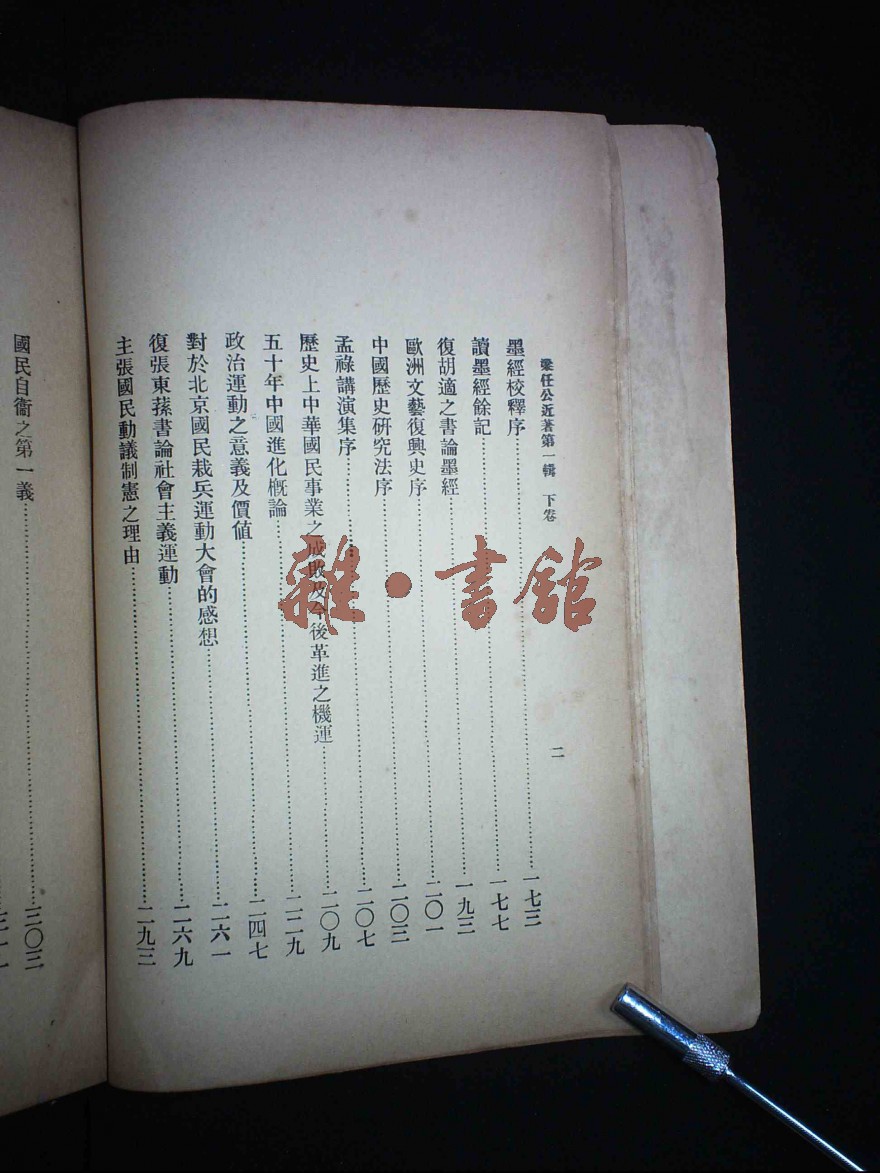 梁任公近著第一輯　下卷
二
墨經校釋序……一七三
讀墨經餘記……一七七
復胡適之書論墨經……一九三
歐洲文藝復興史序……二〇一
中國歷史研究法序……二〇三
孟祿講演集序……二〇七
歷史上中華國民事業之成敗及今後革進之機運……二〇九
五十年中國進化概論……二二九
政治運動之意義及價值……二四七
對於北京國民栽兵運動大會的感想……二六一
復張東蓀書論社會主義運動……二六九
主張國民動議制憲之理由……二九三
國民自衞之第一義……三〇三
雜·書館